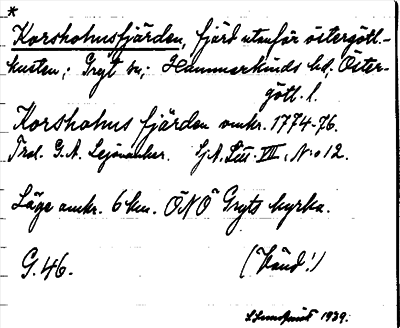 *
Korsholmsfjärden, fjärd utanför östergötl.-
kusten; Gryt sn; Hammarkinds hd. Öster-
götl. l.
Korsholms fjärden omkr. 1774-76.
G. A. Lejonanker. SjA. Litt. VII, N:o 12.
Läge omkr. 6 km. ÖNÖ Gryts kyrka.
G. 46. (Vänd!)
1939.